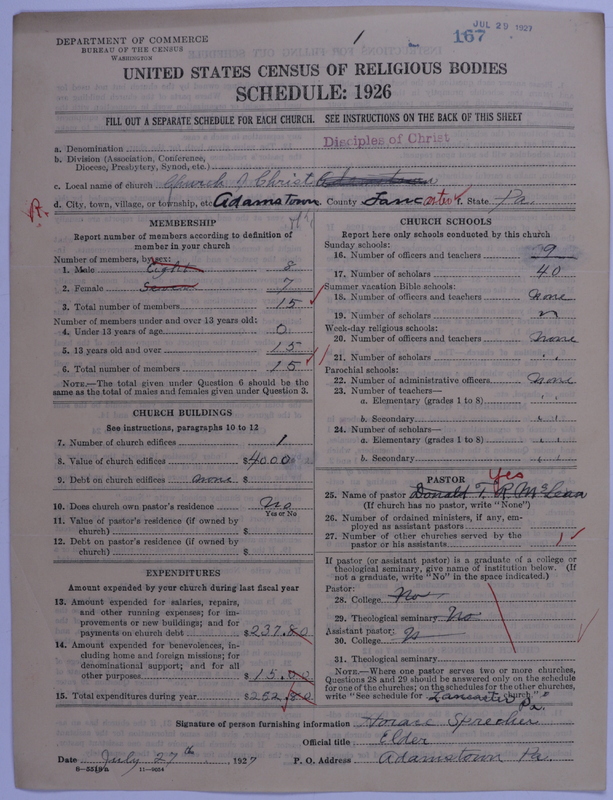 JUL 29 1927
167
1
DEPARTMENT OF COMMERCE
BUREAU OF THE CENSUS
WASHINGTON
UNITED STATES CENSUS OF RELIGIOUS BODIES
SCHEDULE: 1926
FILL OUT A SEPARATE SCHEDULE FOR EACH CHURCH. SEE INSTRUCTIONS ON THE BACK OF THIS SHEET
a. Denomination Disciples of Christ
b. Division (Association, Conference,
Diocese, Presbytery, Synod, etc.)
c. Local name of church Church of Christ Adamstown
d. City, town, village, or township, etc. Adamstown County Lancaster State Pa.
MEMBERSHIP
Report number of members according to definition of
member in your church
Number of members, by sex:
1. Male Eight 8
2. Female Seven 7
3. Total number of members 15
Number of members under and over 13 years old:
4. Under 13 years of age 0
5. 13 years old and over 15
6. Total number of members 15
NOTE.—The total given under Question 6 should be the
same as the total of males and females given under Question 3.
CHURCH BUILDINGS
See instructions, paragraphs 10 to 12
7. Number of church edifices 1
8. Value of church edifices $4000
9. Debt on church edifices none $
10. Does church own pastor's residence? No
Yes or No
11. Value of pastor's residence (if owned by
church) $
12. Debt on pastor's residence (if owned by
church) $
EXPENDITURES
Amount expended by your church during last fiscal year
13. Amount expended for salaries, repairs,
and other running expenses; for im-
provements or new buildings; and for
payments on church debt $237.80
14. Amount expended for benevolences, in-
cluding home and foreign missions; for
denominational support; and for all
other purposes $15.00
15. Total expenditures during year $252.80
CHURCH SCHOOLS
Report here only schools conducted by this church
Sunday schools:
16. Number of officers and teachers 9
17. Number of scholars 40
Summer vacation Bible schools:
18. Number of officers and teachers none
19. Number of scholars "
Week-day religious schools:
20. Number of officers and teachers none
21. Number of scholars "
Parochial schools:
22. Number of administrative officers none
23. Number of teachers—
a. Elementary (grades 1 to 8) "
b. Secondary "
24. Number of scholars—
a. Elementary (grades 1 to 8) "
b. Secondary "
PASTOR Yes
25. Name of pastor Donald T. R. McLean
(If church has no pastor, write "None")
26. Number of ordained ministers, if any, em-
ployed as assistant pastors
27. Number of other churches served by the
pastor or his assistants 1
If pastor (or assistant pastor) is a graduate of a college or
theological seminary, give name of institution below. (If
not a graduate, write "No" in the space indicated.)
Pastor:
28. College No
29. Theological seminary No
Assistant pastor:
30. College
31. Theological seminary
NOTE.—Where one pastor serves two or more churches,
Questions 28 and 29 should be answered only on the schedule
for one of the churches; on the schedules for the other churches,
write "See schedule for Lancaster Pa. church."
Signature of person furnishing information Horace Sprecher
Official title Elder
Date July 27th, 1927 P. O. Address Adamstown Pa.
6—5519a 11—9554